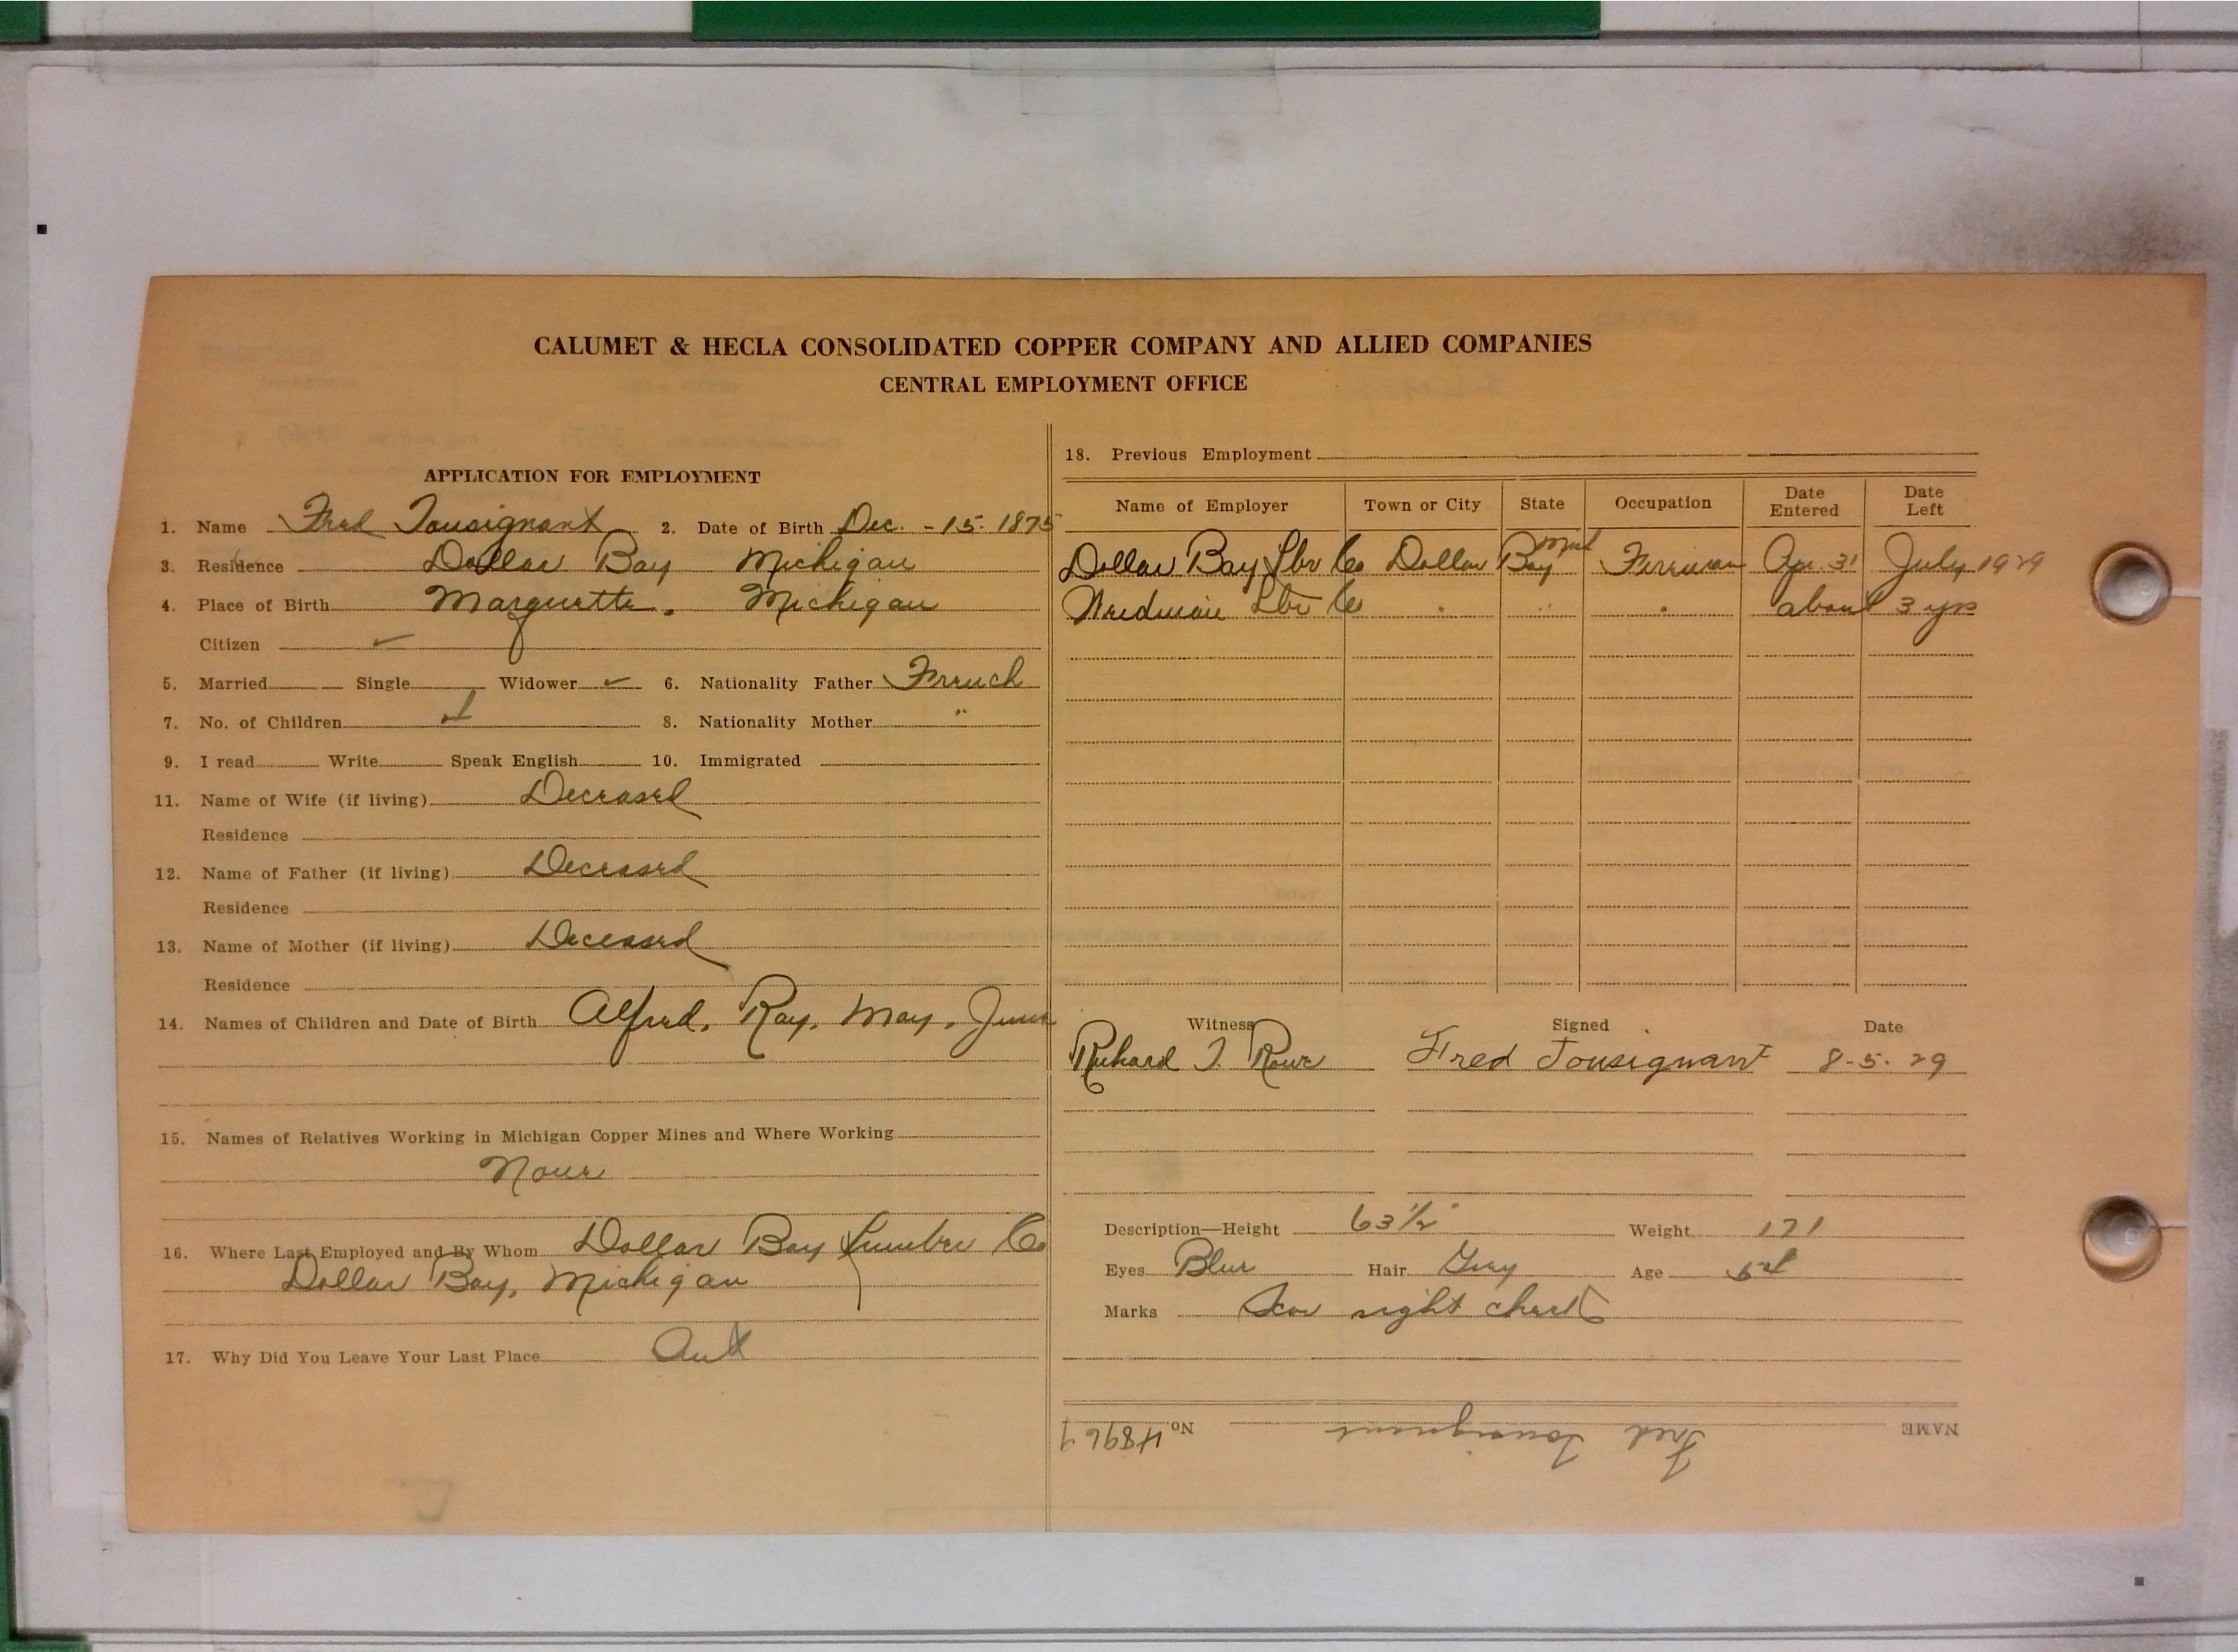 CALUMET & HECLA CONSOLIDATED COPPER COMPANY AND ALLIED COMPANIES
CENTRAL EMPLOYMENT OFFICE
APPLICATION FOR EMPLOYMENT
1. Name Fred Tousignant 2. Date of Birth Dec. - 15 - 1875
3. Residence Dollar Bay Michigan
4. Place of Birth Marquette, Michigan
Citizen ✓
5. Married Single Widower ✓ 6. Nationality Father French
7. No. of Children 4 8. Nationality Mother "
9. I read Write Speak English 10. Immigrated
11. Name of Wife (if living) Deceased
Residence
12. Name of Father (if living) Deceased
Residence
13. Name of Mother (if living) Deceased
Residence
14. Names of Children and Date of Birth Alfred, Ray, May, June
15. Names of Relatives Working in Michigan Copper Mines and Where Working
None
16. Where Last Employed and By Whom Dollar Bay Lumber Co
Dollar Bay, Michigan
17. Why Did You Leave Your Last Place
18. Previous Employment
Name of Employer Town or City State Occupation Date Entered Date Left
Dollar Bay Lbr Co Dollar Bay Mich Fireman Apr. 31 July 1929
Lbr Co " " " about 3 yrs
Witness Signed Date
Richard T. Rowe Fred Tousignant 8-5-29
Description—Height 63 1/2" Weight 171
Eyes Blue Hair Grey Age 54
Marks Scar right cheek
NAME Fred Tousignant No. 48967